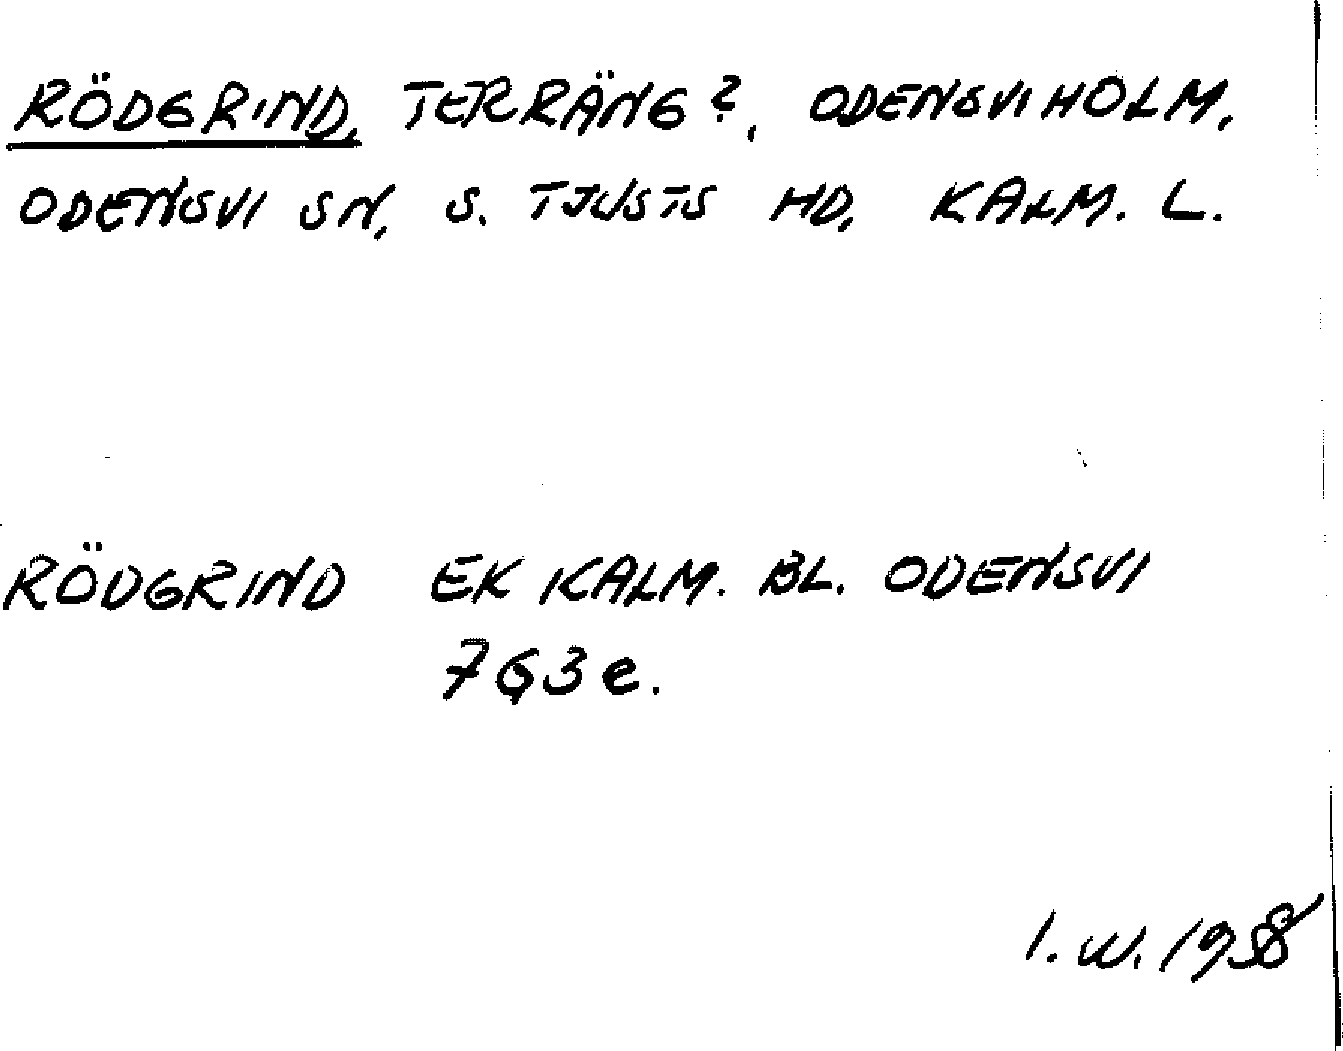 RÖDGRIND, TERRÄNG?, ODENSVIHOLM,
ODENSVI SN, S. TJUSTS HD, KALM. L.
RÖDGRIND EK KALM. BL. ODENSVI
7G3e.
I. W. 1958